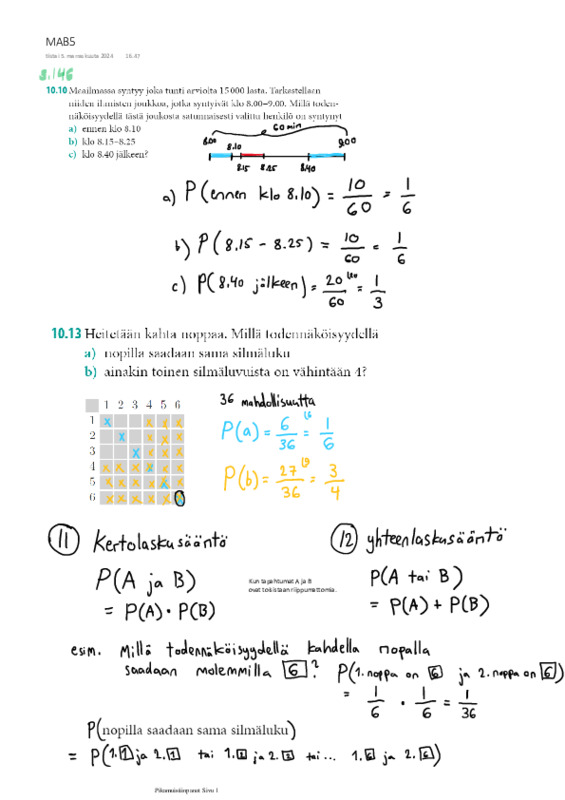 MAB5
tiistai 5. maaliskuuta 2024 16.47
s.146
10.10 Maailmassa syntyy joka tunti arviolta 15 000 lasta. Tarkastellaan
niiden ihmisten joukkoa, jotka syntyivät klo 8.00–9.00. Millä toden-
näköisyydellä tästä joukosta satunnaisesti valittu henkilö on syntynyt
a) ennen klo 8.10
b) klo 8.15–8.25
c) klo 8.40 jälkeen?
60 min
8.00 8.10 9.00
8.15 8.25 8.40
a) P(ennen klo 8.10) = 10/60 = 1/6
b) P(8.15 - 8.25) = 10/60 = 1/6
c) P(8.40 jälkeen) = 20/60 = 1/3
10.13 Heitetään kahta noppaa. Millä todennäköisyydellä
a) nopilla saadaan sama silmäluku
b) ainakin toinen silmäluvuista on vähintään 4?
1 2 3 4 5 6
1 x x x x
2 x x x x
3 x x x x
4 x x x x x x
5 x x x x x x
6 x x x x x x
36 mahdollisuutta
P(a) = 6/36 (6 = 1/6
P(b) = 27/36 (9 = 3/4
11 Kertolaskusääntö
P(A ja B)
= P(A) · P(B)
Kun tapahtumat A ja B
ovat toisistaan riippumattomia.
12 yhteenlaskusääntö
P(A tai B)
= P(A) + P(B)
esim. Millä todennäköisyydellä kahdella nopalla
saadaan molemmilla 6? P(1. noppa on 6 ja 2. noppa on 6)
= 1/6 · 1/6 = 1/36
P(nopilla saadaan sama silmäluku)
= P(1. 1 ja 2. 1 tai 1. 2 ja 2. 2 tai ... 1. 6 ja 2. 6)
Pikamuistiinpanot Sivu 1